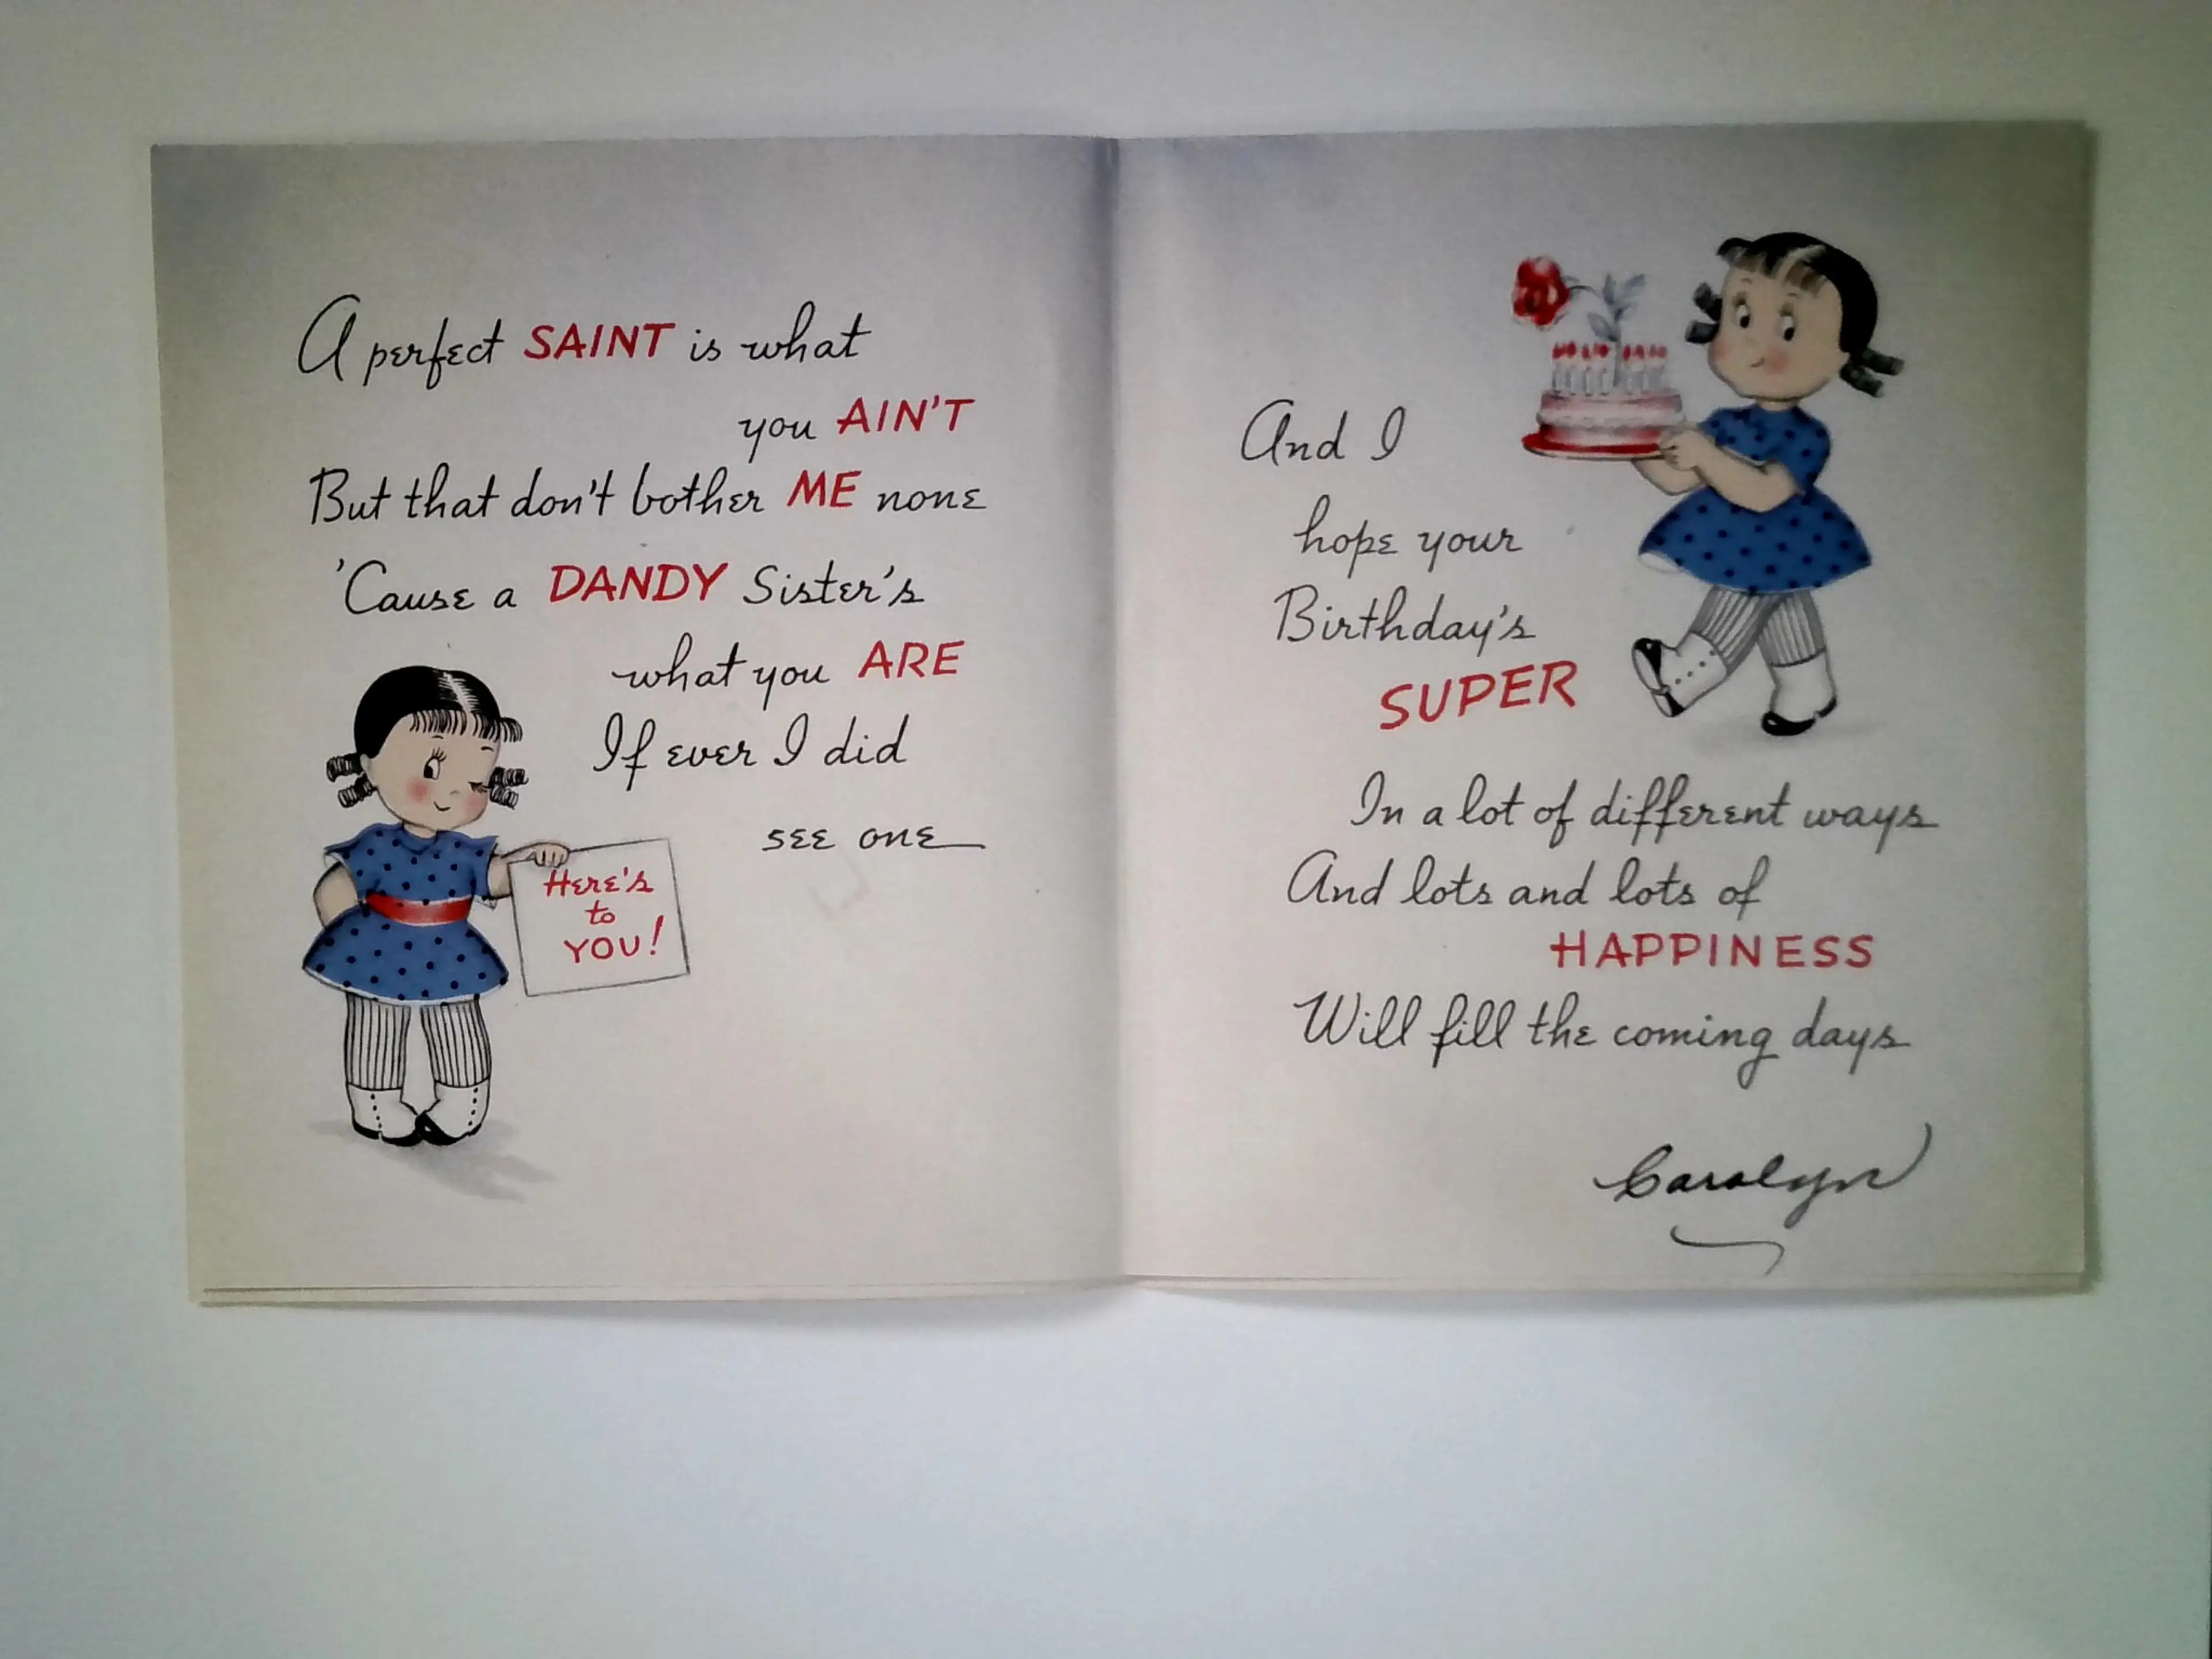 A perfect SAINT is what
you AIN'T
But that don't bother ME none
'Cause a DANDY Sister's
what you ARE
If ever I did
see one
Here's
to
YOU!
And I
hope your
Birthday's
SUPER
In a lot of different ways
And lots and lots of
HAPPINESS
Will fill the coming days
Carolyn